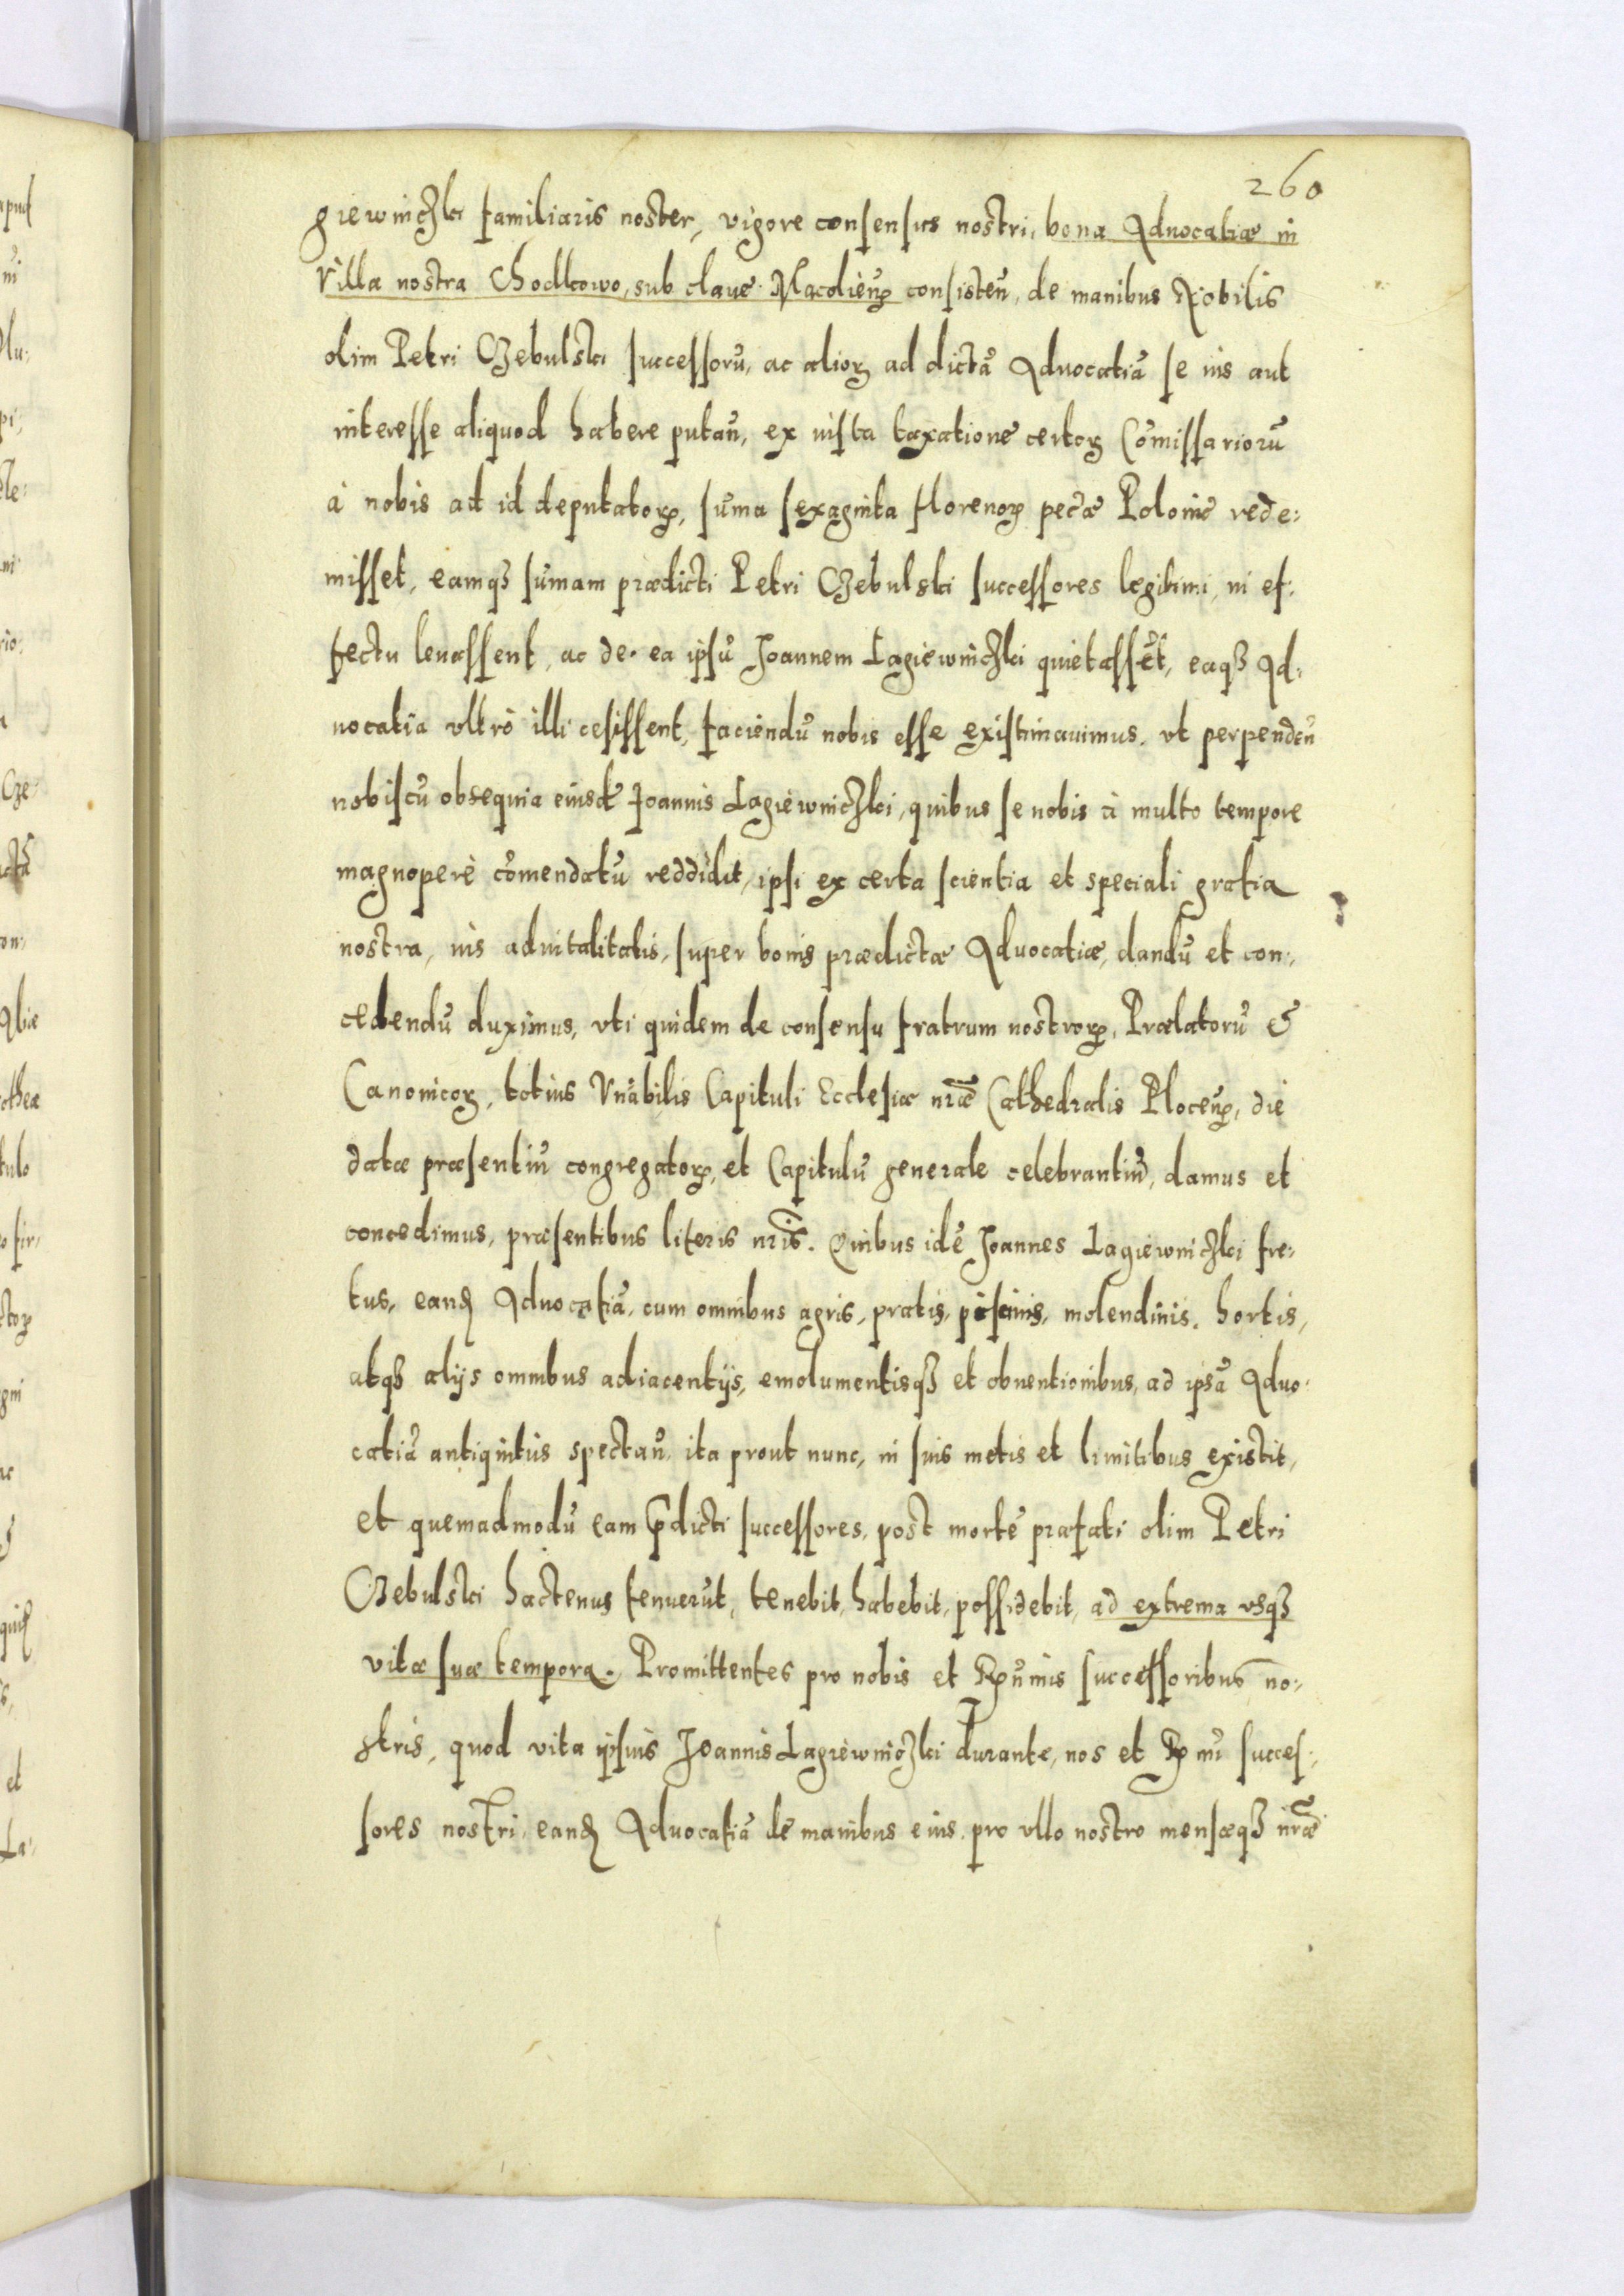 260
giewniczki familiaris noster, vigore consensus nostri, bona Aduocatiæ in
Villa nostra Chodkowo, sub claue Macolieñ consisteñ, de manibus Nobilis
olim Petri Czebulski successorũ, ac alioꝝ ad dictã Aduocatiã se ius aut
interesse aliquod habere putañ, ex iusta taxatione certoꝝ Cõmissariorũ
à nobis ad id deputatoꝝ, sũma sexaginta florenoꝝ pecæ̃ Polonic̃ rede:
misset, eamqꝫ sũmam prædicti Petri Czebulski successores legitimi, in ef:
fectu leuassent, ac de ea ipsũ Joannem Lagiewniczki quietassẽt, eaqꝫ Ad:
uocatia vltrò illi cesissent, faciendũ nobis esse existimauimus, vt perpendeñ
nobiscũ obsequia eiusdẽ Joannis Lagiewniczki, quibus se nobis à multo tempore
magnoperè cõmendatũ reddidit, ipsi ex certa scientia et speciali gratia
nostra, ius aduitalitatis, super bonis prædictæ Aduocatiæ, dandũ et con:
cedendũ duximus, vti quidem de consensu fratrum nostroꝝ, Prælatorũ &
Canonicoꝝ, totius Vñabilis Capituli Ecclesiæ nræ̃ Cathedralis Ploceñ, die
datæ præsentiũ congregatoꝝ, et Capitulũ generale celebrantiũ, damus et
concedimus, præsentibus literis nr̃is. Quibus idẽ Joannes Lagiewniczki fre:
tus, eanđ Aduocatiã, cum omnibus agris, pratis, piscinis, molendinis, hortis,
atqꝫ alijs omnibus adiacentijs, emolumentisqꝫ et obuentionibus, ad ipsã Aduo:
catiã antiquitùs spectañ, ita prout nunc, in suis metis et limitibus existit,
et quemadmodũ eam p̃dicti successores, post mortẽ præfati olim Petri
Czebulski hactenus tenuerũt, tenebit, habebit, possidebit, ad extrema vsqꝫ
vitæ suæ tempora. Promittentes pro nobis et Rp̃ũmis successoribus no:
stris, quod vita ipsius Joannis Lagiewniczki durante, nos et Rp̃mi succes:
sores nostri, eanđ Aduocatiã de manibus eius, pro vllo nostro mensæqꝫ nræ̃